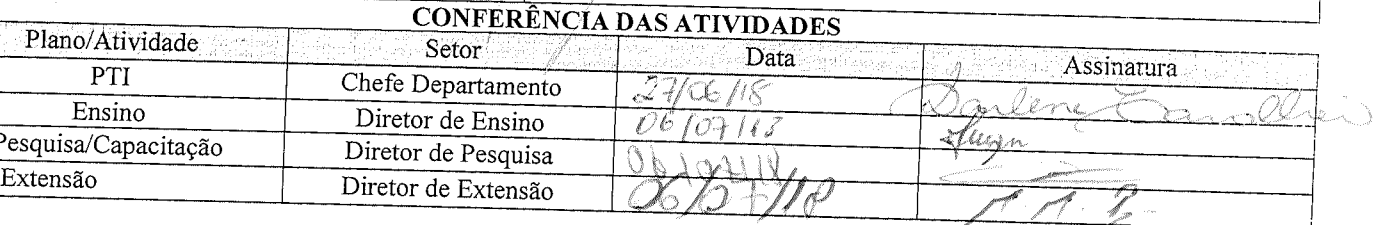 CONFERÊNCIA DAS ATIVIDADES
Plano/Atividade Setor Data Assinatura
PTI Chefe Departamento 27/06/18 Darlene
Ensino Diretor de Ensino 06/07/13
Pesquisa/Capacitação Diretor de Pesquisa
Extensão Diretor de Extensão 06/07/18